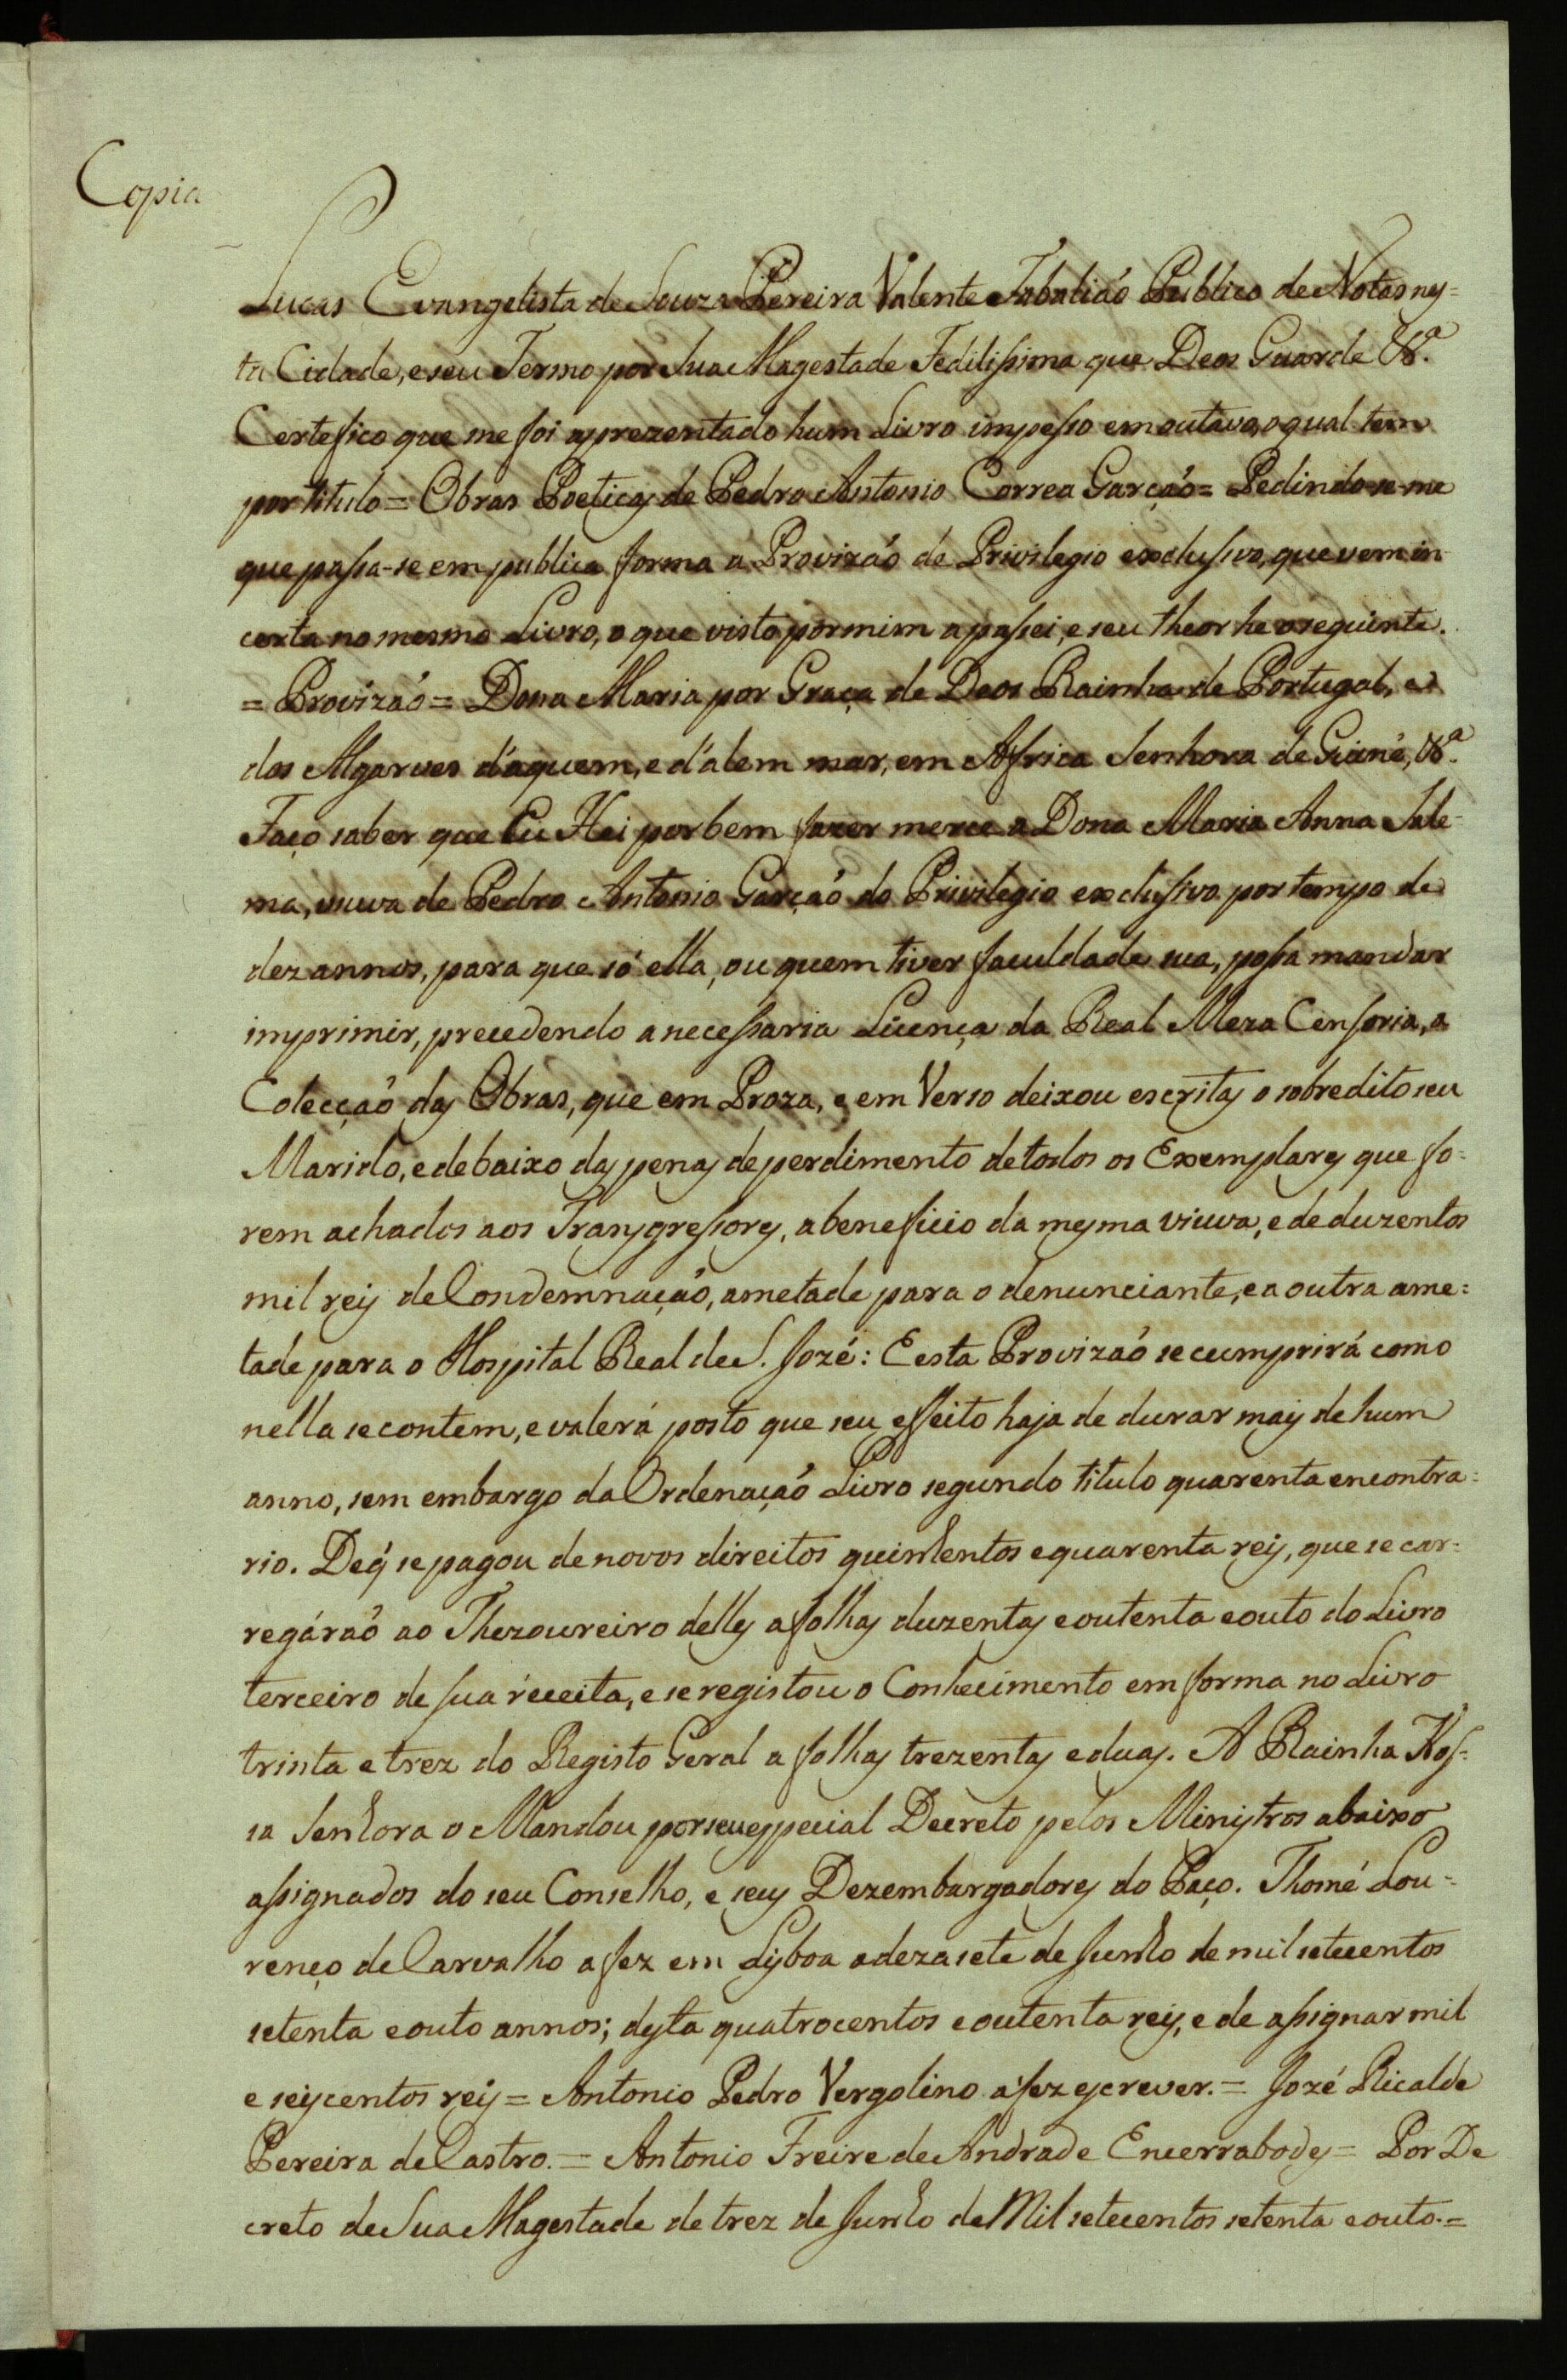 Copia
Lucas Evangelista de Souza Pereira Valente Tabaliaó Publico de Notas nes=
ta Cidade, e seu Termo por Sua Magestade Fedilissima que Deos Guarde &ª.
Certefico que me foi apprezentado hum Livro impesso em outavo, o qual tem
por titulo = Obras Poeticas de Pedro Antonio Correa Garçaó = Pedindo-se-me
que passa-se em publica forma a Provizaó de Privilegio exclusivo, que vem in-
certa no mesmo Livro, o que visto por mim a passei, e seu theor he o seguinte.
= Provizaó = Dona Maria por Graça de Deos Rainha de Portugal, e
dos Algarves d'aquem, e d'alem mar, em Africa Senhora de Guiné, &ª.
Faço saber que Eu Hei por bem fazer merce a Dona Maria Anna Sale-
ma, viuva de Pedro Antonio Garçaó do Privilegio exclusivo por tempo de
dez annos, para que só ella, ou quem tiver faculdade sua, possa mandar
imprimir, precedendo a necessaria Licença da Real Meza Censoria, a
Colecçaó das Obras, que em Proza, e em Verso deixou escritas o sobredito seu
Marido, e debaixo das penas de perdimento de todos os Exemplares que fo=
rem achados aos Transgressores, a beneficio da mesma viuva, e de duzentos
mil reis de Condemnaçaó, ametade para o denunciante, e a outra ame=
tade para o Hospital Real de S. Jozé: E esta Provizaó se cumprirá como
nella se contem, e valerá posto que seu effeito haja de durar mais de hum
anno, sem embargo da Ordenaçaó Livro segundo titulo quarenta encontra=
rio. Deq̃ se pagou de novos direitos quinhentos e quarenta reis, que se car=
regáraó ao Thezoureiro delles a folhas duzentas e outenta e outo do Livro
terceiro de sua receita, e se registou o Conhecimento em forma no Livro
trinta e trez do Registo Geral a folhas trezentas e duas. A Rainha Nos=
sa Senhora o Mandou por seu especial Decreto pelos Ministros abaixo
assignados do seu Conselho, e seus Dezembargadores do Paço. Thomé Lou=
renço de Carvalho a fez em Lisboa a dezasete de Junho de mil setecentos
setenta e outo annos; desta quatrocentos e outenta reis, e de assignar mil
e seiscentos reis = Antonio Pedro Vergolino a fez escrever. = Jozé Ricalde
Pereira de Castro. = Antonio Freire de Andrade Encerrabodes = Por De
creto de Sua Magestade de trez de Junho de Mil setecentos setenta e outo. =